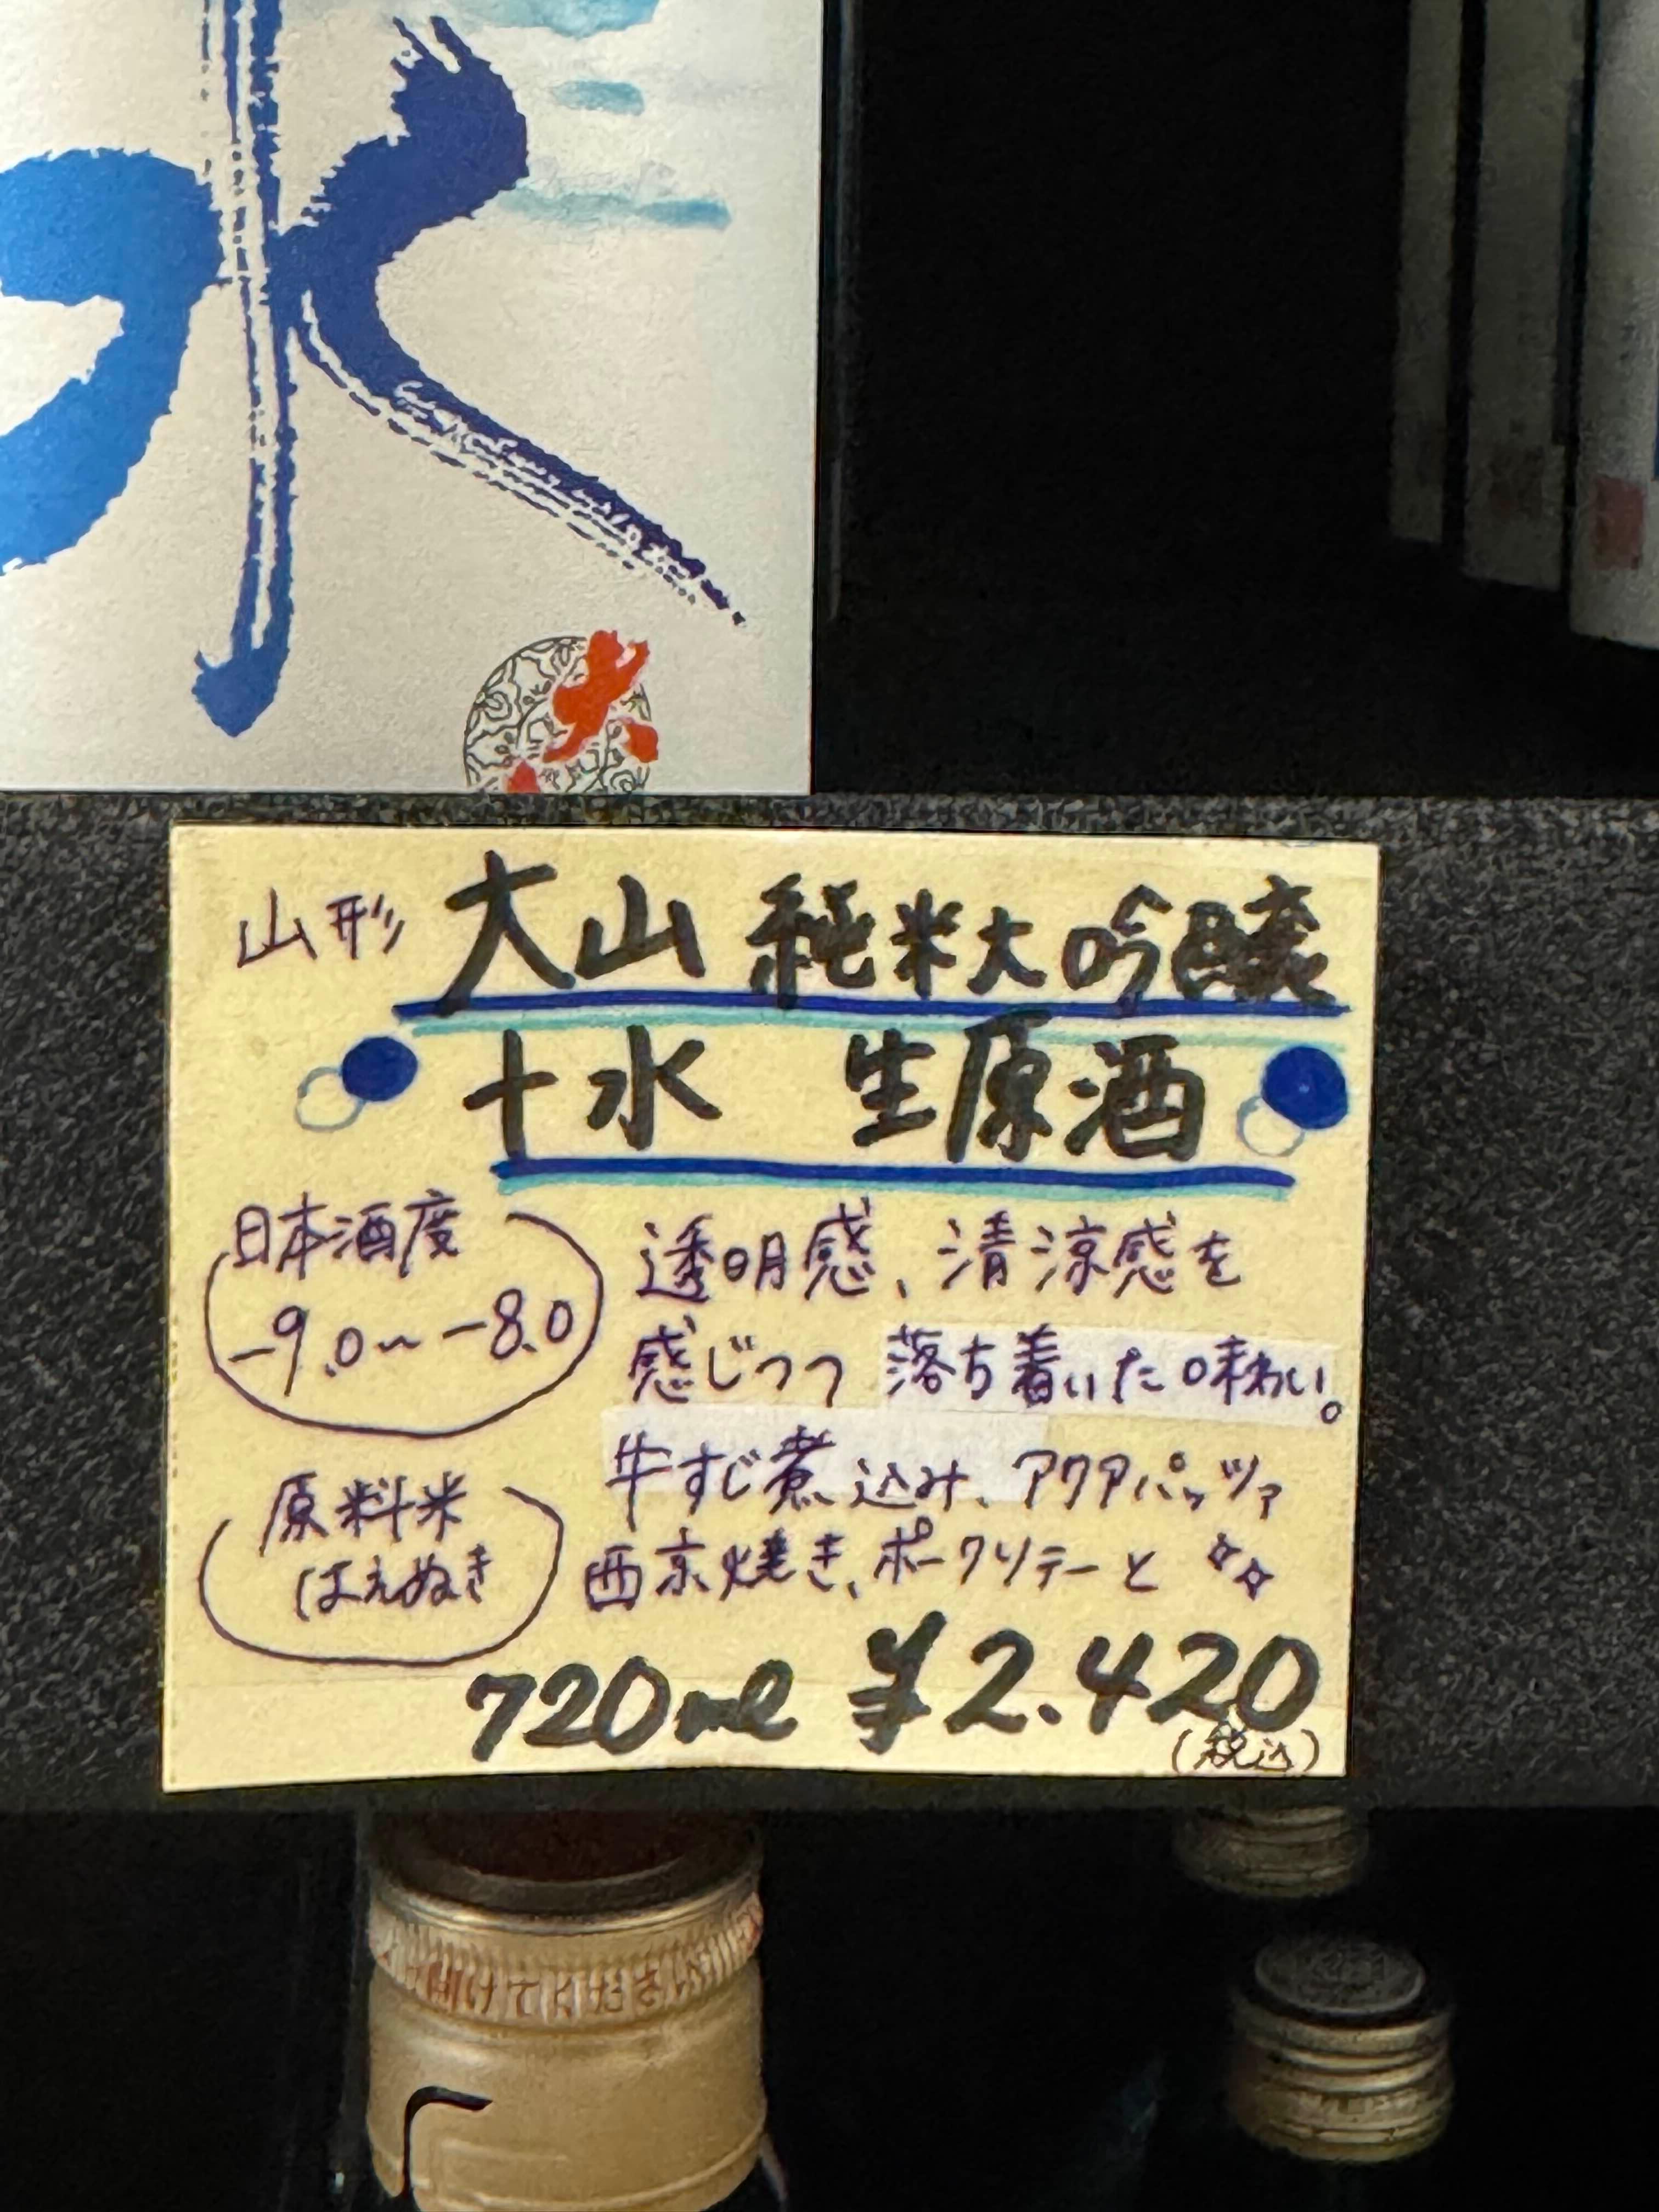 水
大
山形 大山 純米大吟醸
十水 生原酒
日本酒度
-9.0～-8.0
透明感、清涼感を
感じつつ落ち着いた味わい。
原料米
はえぬき
牛すじ煮込み、アクアパッツァ
西京焼き、ポークソテーと
720ml ¥2.420
(税込)
開けてください